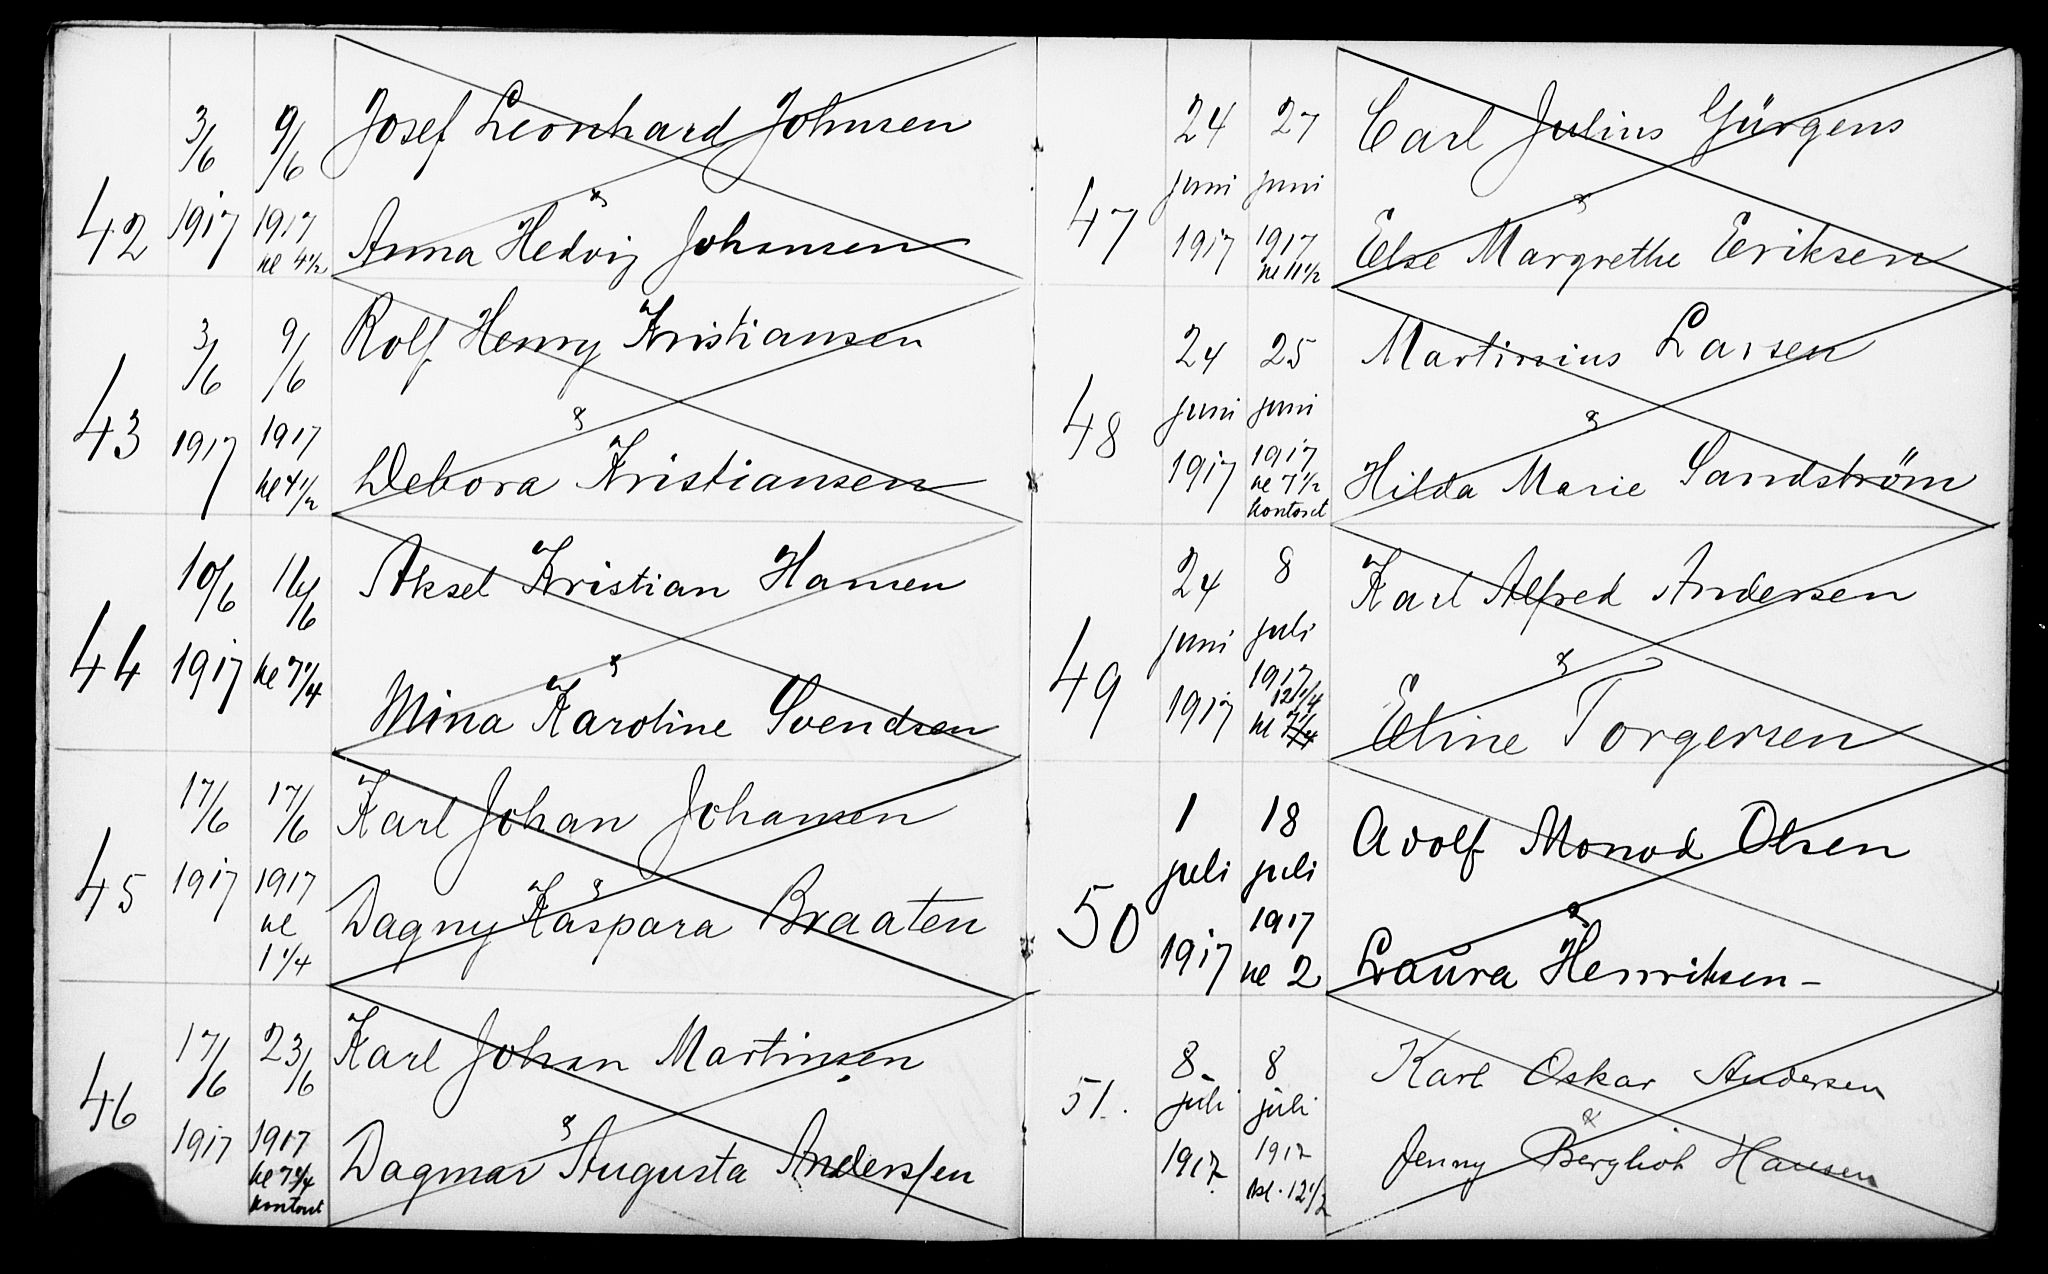 42
3/6
1917
9/6
1917
kl 4 1/2
Josef Leonhard Johnsen
&
Anna Hedvig Johansen
43
3/6
1917
9/6
1917
kl 4 1/2
Rolf Henry Kristiansen
&
Debora Kristiansen
44
10/6
1917
16/6
kl 7 1/4
Aksel Kristian Hansen
&
Mina Karoline Svendsen
45
17/6
1917
17/6
1917
kl
1 1/4
Karl Johan Johansen
&
Dagny Kaspara Braaten
46
17/6
1917
23/6
1917
kl 7 1/4
kontoret
Karl Johan Martinsen
&
Dagmar Augusta Anderssen
47
24
juni
1917
27
juni
1917
kl 11 1/2
Carl Julius Gürgens
&
Else Margrethe Eriksen
48
24
juni
1917
25
juni
1917
kl 7 1/2
kontoret
Martinius Larsen
&
Hilda Marie Sandström
49
24
juni
1917
8
juli
1917
12 1/4
kl 7 1/4
Karl Alfred Andersen
&
Eline Torgersen
50
1
juli
1917
18
juli
1917
kl 2
Adolf Monod Olsen
&
Laura Henriksen –
51.
8.
juli
1917.
8
juli
1917
kl. 12 1/2
Karl Oskar Andersen
&
Jenny Bergliot Hansen